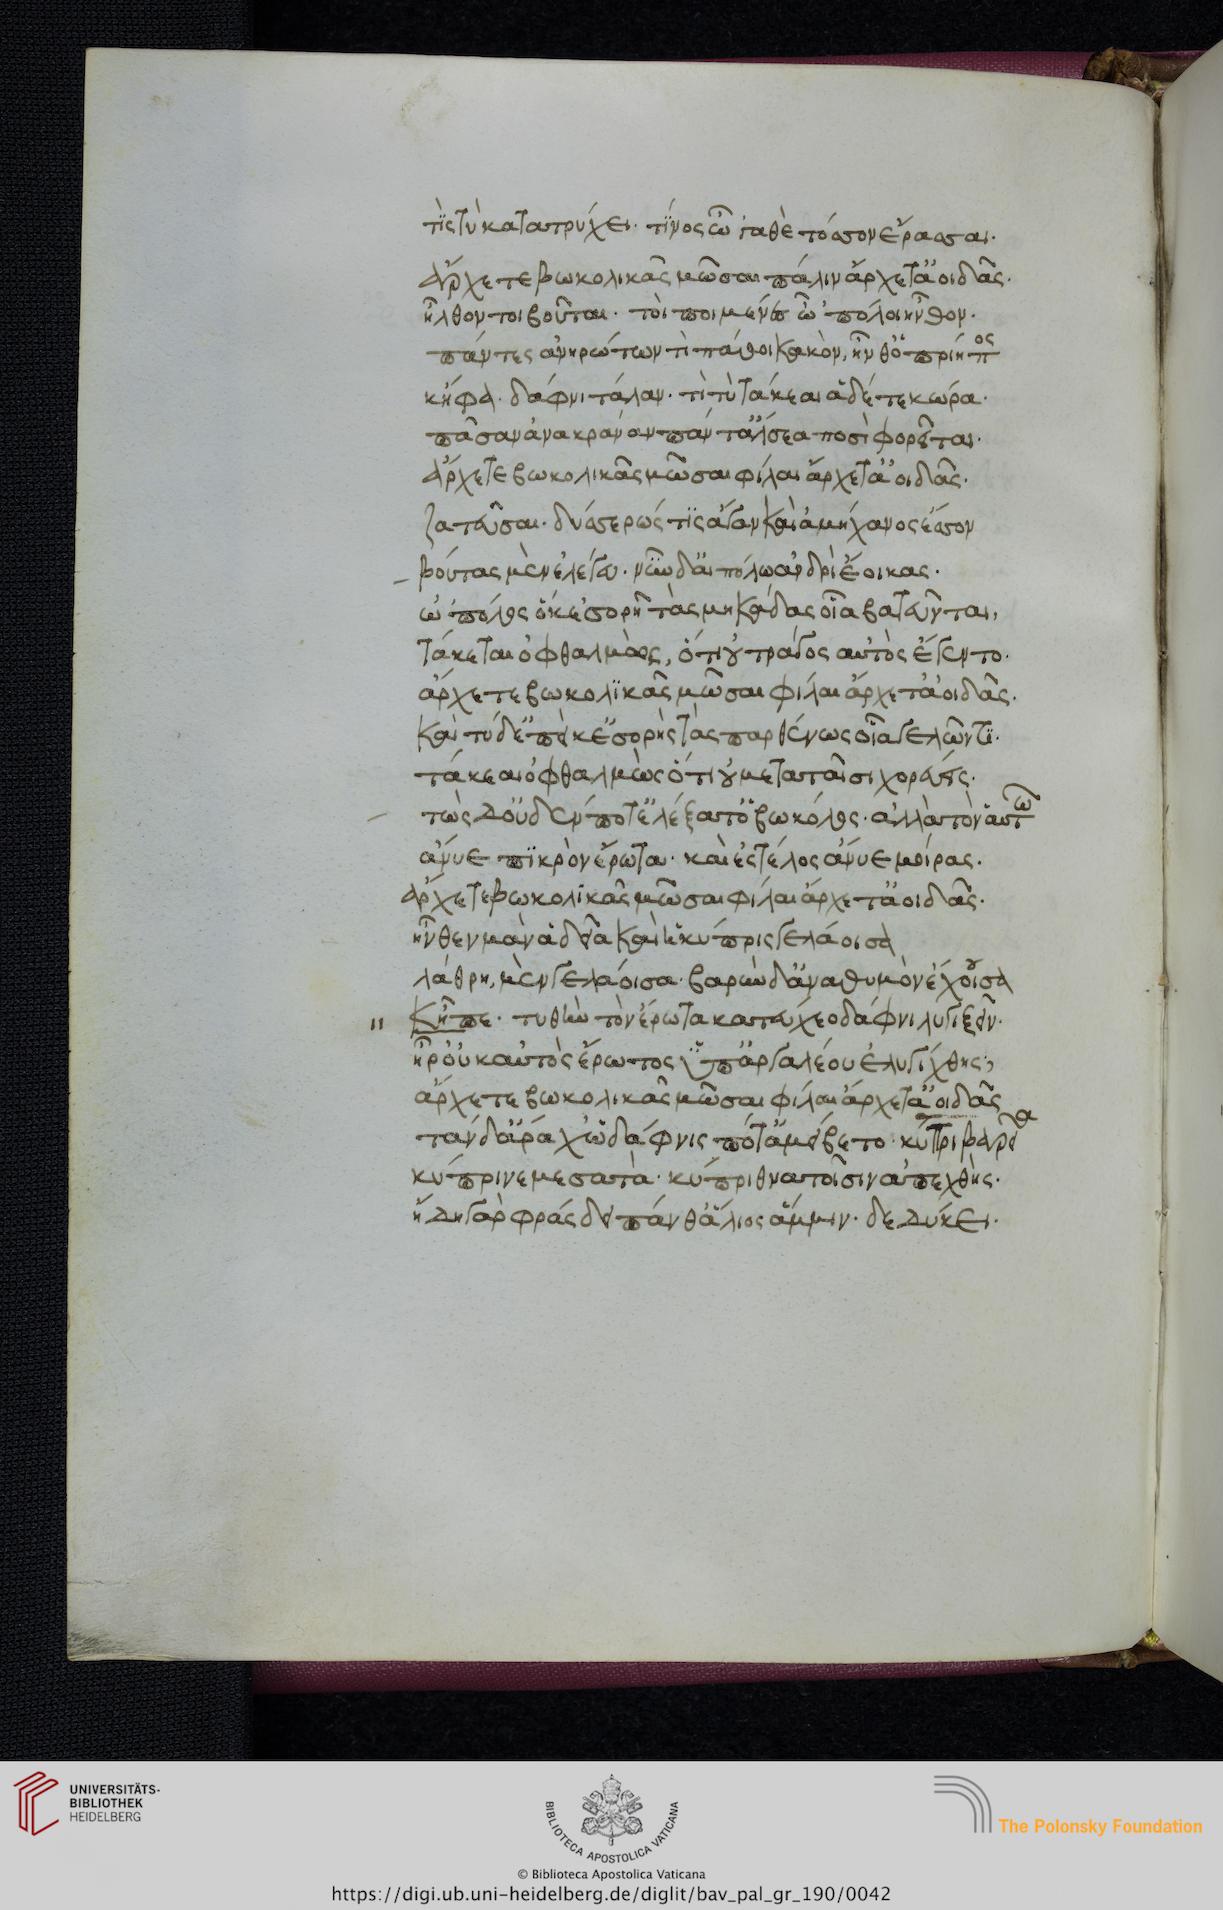 τὶς τὺ κατατρύχει. τίνος ὦ 'γαθὲ τόσσον ἔρασσαι.
ἄρχετε βωκολικᾶς μῶσαι πάλιν ἄρχετ' ἀοιδᾶς.
ἦλθον τοὶ βοῦται. τοὶ ποιμένες ὦ 'πόλοι ἦνθον.
πάντες ἀνηρώτων τὶ πάθοι κακὸν, ἦνθ' ὁ πρίηπος
κἤφα. δάφνι τάλαν. τὶ τὺ τάκεαι ἁ δέ τε κώρα.
πᾶσαν ἀνὰ κράναν πάντ' ἄλσεα ποσὶ φορεῖται.
ἄρχετε βωκολικᾶς μῶσαι φίλαι ἄρχετ' ἀοιδᾶς.
ζατεῦσαι. δύσερώς τις ἄγαν καὶ ἀμήχανος ἐσσὶν
βούτας μὲν ἐλέγευ. νῦν δ' αἰπόλω ἀνδρὶ ἔοικας.
ὡ 'πόλος ὅκ' ἐσορῆ τὰς μηκάδας οἷα βατεῦνται,
τάκεται ὀφθαλμὼς, ὅτι οὐ τράγος αὐτὸς ἔγεντο.
ἄρχετε βωκολικᾶς μῶσαι φίλαι ἄρχετ' ἀοιδᾶς.
καὶ τύ δ' ἐπεί κ' ἐσορῆς τὰς παρθένως οἷα γελῶντι.
τάκεαι ὀφθαλμὼς ὅτι οὐ μετὰ ταῖσι χορεύεις.
τὼς δ' οὐδὲν ποτελέξατ' ὁ βωκόλος. ἀλλὰ τὸν αὑτῶ
ἄνυε πικρὸν ἔρωτα. καὶ ἐς τέλος ἄνυε μοίρας.
ἄρχετε βωκολικᾶς μῶσαι φίλαι ἄρχετ' ἀοιδᾶς.
ἦνθεν μὰν ἁδεῖα καὶ ἁ κύπρις γελάοισα
λάθρη μὲν γελάοισα. βαρὺν δ' ἀνὰ θυμὸν ἔχοισα
κεἶπε. τὺ θὴν τὸν ἔρωτα κατεύχεο δάφνι λυγιξεῖν.
ἦρ' οὐκ αὐτὸς ἔρωτος ὑπ' ἀργαλέου ἐλυγίχθης;
ἄρχετε βωκολικᾶς μῶσαι φίλαι ἄρχετ' ἀοιδᾶς
τὰν δ' ἄρα χὡ δάφνις ποταμείβετο. κύπρι βαρεῖα
κύπρι νεμεσσατὰ. κύπρι θνατοῖσιν ἀπεχθὴς.
ἤδη γὰρ φράσδει πάνθ' ἅλιος ἄμμιν. δεδύκει.
UNIVERSITÄTS-
BIBLIOTHEK
HEIDELBERG
BIBLIOTECA APOSTOLICA VATICANA
The Polonsky Foundation
© Biblioteca Apostolica Vaticana
https://digi.ub.uni-heidelberg.de/diglit/bav_pal_gr_190/0042